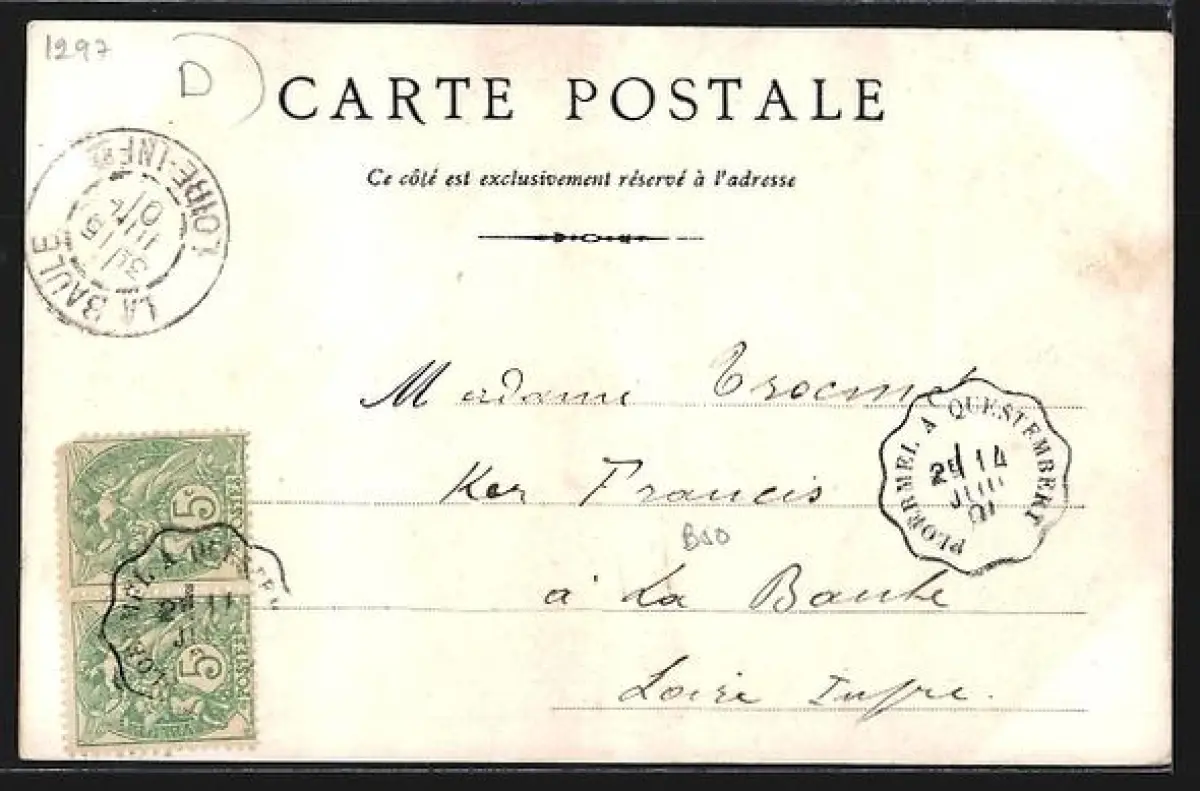 1297
D
CARTE POSTALE
Ce côté est exclusivement réservé à l'adresse
LA BAULE LOIRE-INFRE
JUIL
01
Madame Trocmé
Ker Francis
B50
à La Baule
Loire Infre.
PLOERMEL A QUESTEMBERT
JUIL
01
5c
POSTES
5c
POSTES